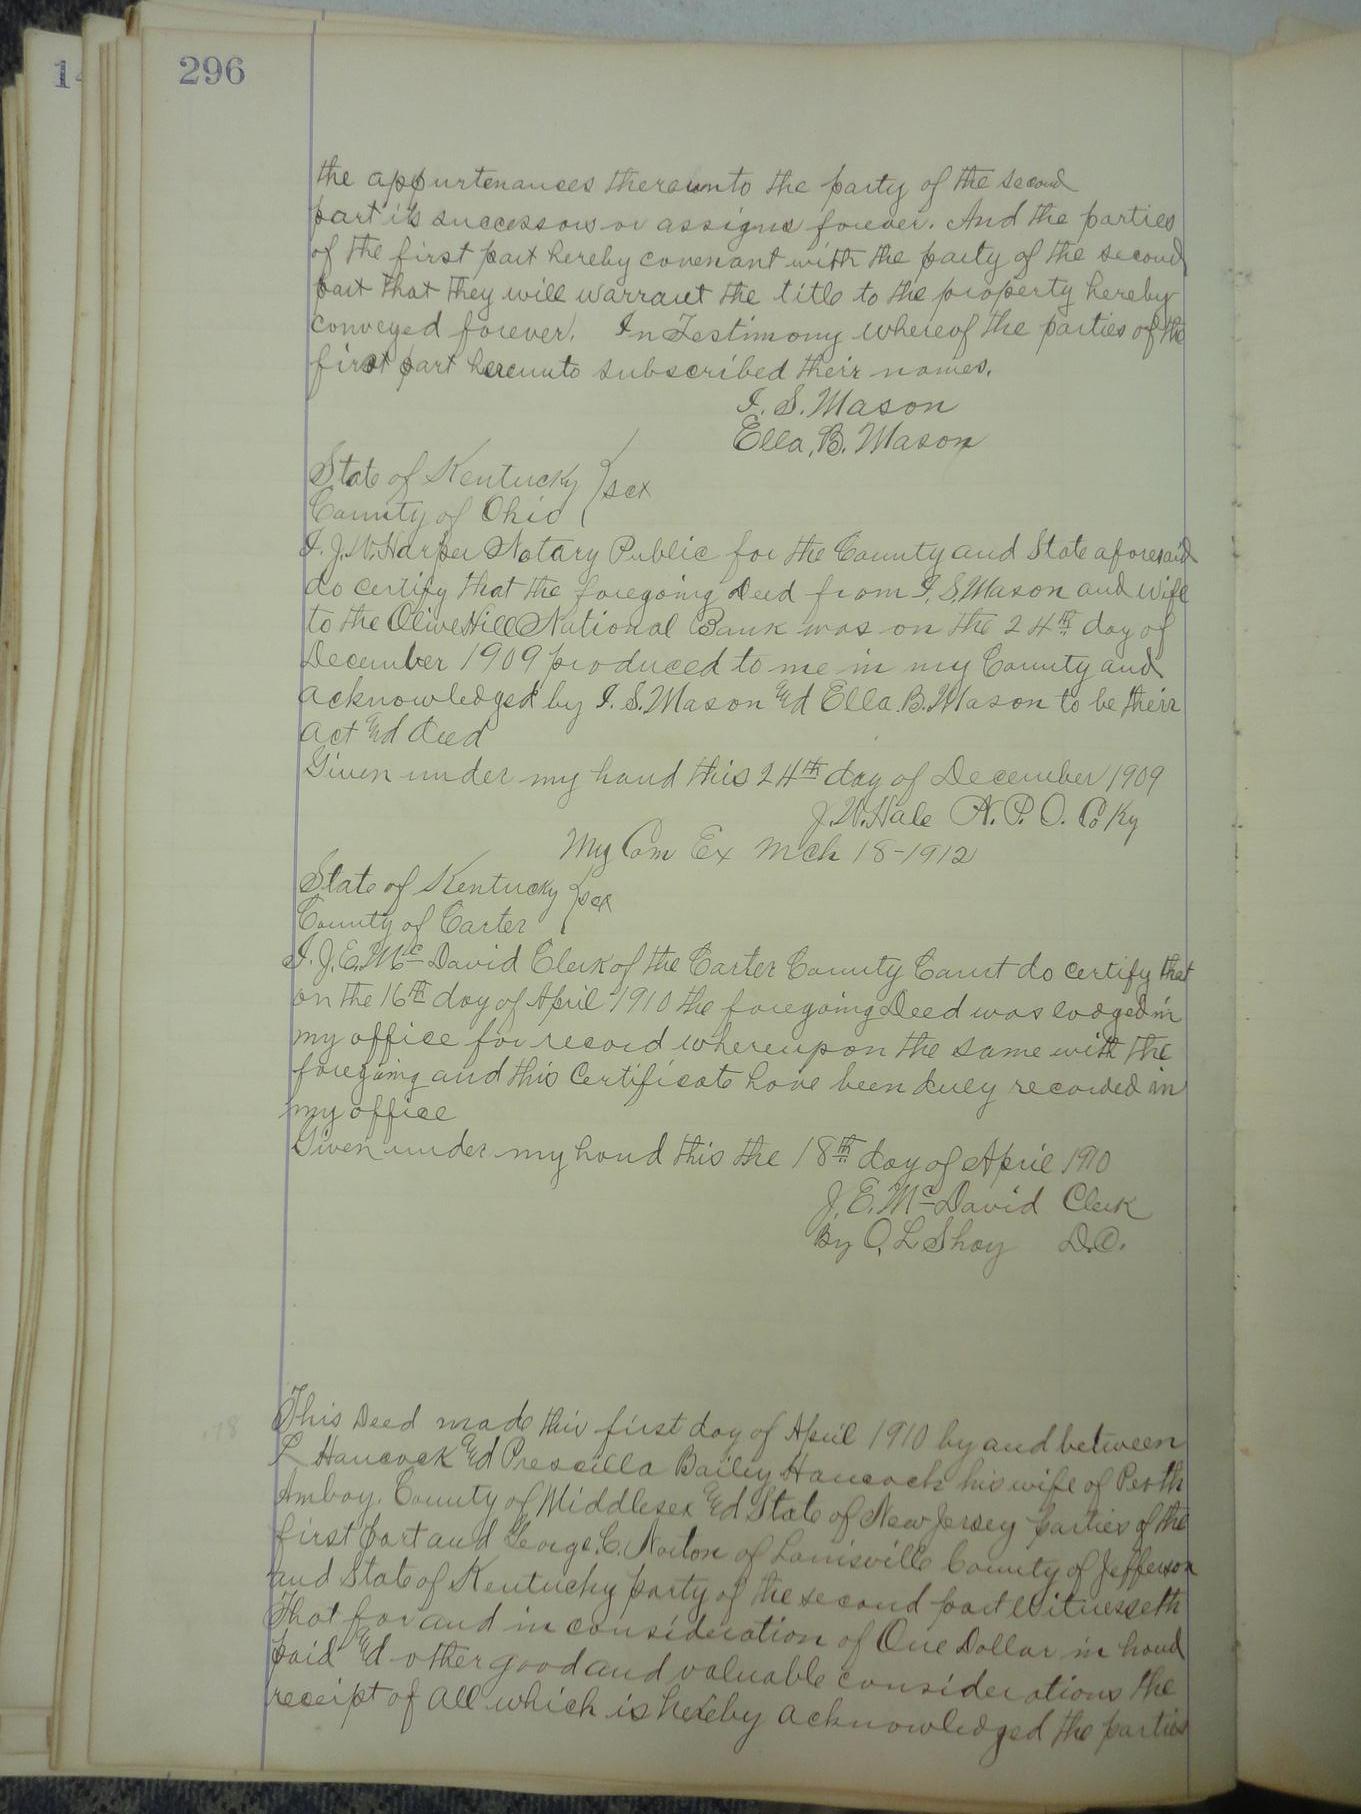 14
296
the appurtenances thereunto the party of the second
part it's successors or assigns forever. And the parties
of the first part hereby covenant with the party of the second
part that they will warrant the title to the property hereby
conveyed forever. In Testimony whereof the parties of the
first part hereunto subscribed their names.
I. S. Mason
Ella, B. Mason
State of Kentucky } sct
County of Ohio
I. J. W. Harper Notary Public for the County and State aforesaid
do certify that the foregoing Deed from I. S. Mason and Wife
to the Olive Hill National Bank was on the 24th day of
December 1909 produced to me in my County and
acknowledged by I. S. Mason and Ella. B. Mason to be their
act and deed
Given under my hand this 24th day of December 1909
J. W. Hale N. P. O. Co Ky
My Com Ex Mch 18-1912
State of Kentucky } sct
County of Carter
I. J. E. Mc David Clerk of the Carter County Court do certify that
on the 16th day of April 1910 the foregoing Deed was lodged in
my office for record whereupon the same with the
foregoing and this Certificate have been duly recorded in
my office
Given under my hand this the 18th day of April 1910
J. E. Mc David Clerk
By O, L Shay D.C.
This Deed made this first day of April 1910 by and between
L Hancock and Prescilla Bailey Hancock his wife of Perth
Amboy, County of Middlesex and State of New Jersey parties of the
first part and George. C. Norton of Louisville County of Jefferson
and State of Kentucky party of the second part Witnesseth
That for and in consideration of One Dollar in hand
paid and other good and valuable considerations the
receipt of all which is hereby acknowledged the parties